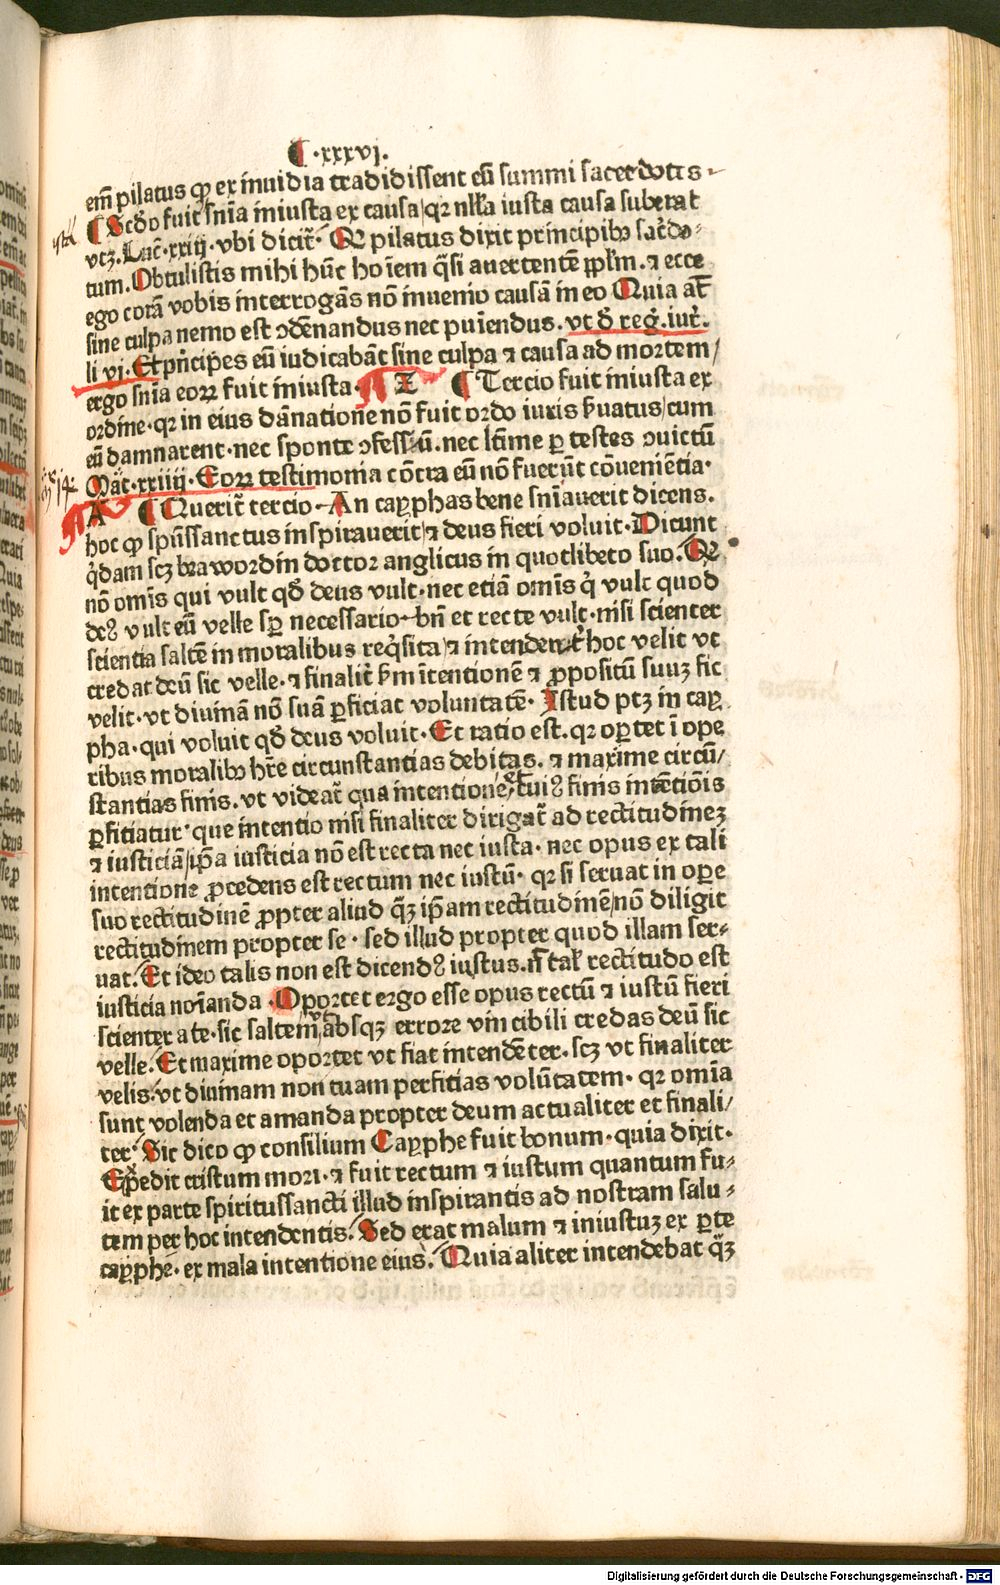 ¶ .xxxvi.
em̄ pilatus ꝙ ex inuidia tradidissent eū summi sacerdotes
¶ Scd̓o fuit sn̄ia iniusta ex causa/ qꝛ nll̓a iusta causa suberat
vtꝫ. Luc̄. xxiij. vbi dicit̄. Qꝛ pilatus dixit principibꝰ sac̓do⸗
tum. Obtulistis mihi hūc hoīem q̄si auertentē ppl̓m. ⁊ ecce
ego corā vobis interrogās nō inuenio causā in eo Quia at̄
sine culpa nemo est ꝯdēnandus nec puīendus. vt d̓ reg̓. iur̓.
li vi. Et pn̄cipes eū iudicabāt sine culpa ⁊ causa ad mortem/
ergo sn̄ia eoꝝ fuit iniusta. ¶ Tercio fuit iniusta ex
ordīne. qꝛ in eius dānatione nō fuit ordo iuris ẜuatus/ cum
eū damnarent. nec sponte ꝯfessū. nec ltīme ꝑ testes ꝯuictū
Mat̄. xxiiij. Eoꝝ testimonia cōtra eū nō fuerūt cōuenīētia.
A ¶ Querit̄ tercio. An cayphas bene sn̄iauerit dicens.
hoc ꝙ spūssanctus inspirauerit/ ⁊ deus fieri voluit. Dicunt
q̇dam scꝫ brawordin doctor anglicus in quotlibeto suo. Qꝛ
nō omīs qui vult qd̓ deus vult. nec etiā omīs q̇ vult quod
deꝰ vult eū velle sꝑ necessario. bn̄ et recte vult. nisi scienter
scientia saltē in moralibus req̇sita/ ⁊ intendent̓ hoc velit vt
credat deū sic velle. ⁊ finalit̓ ẜm itentionē ⁊ ꝓpositū suuꝫ sic
velit. vt diuinā nō suā ꝑficiat voluntatē. Istud ptꝫ in cay
pha. qui voluit qd̓ deus voluit. Et ratio est. qꝛ oꝑtet ī ope
ribus moralibꝰ hr̄e circunstantias debitas. ⁊ maxime circū/
stantias finis. vt videat̄ qua intentione, ⁊ cuiꝰ finis intētiōis
ꝑficiatur. que intentio nisi finaliter dirigat̄ ad rectitudineꝫ
⁊ iusticiā/ ip̄a iusticia nō est recta nec iusta. nec opus ex tali
intentione ꝓcedens est rectum nec iustū. qꝛ si seruat in oꝑe
suo rectitudinē ꝓpter aliud q̄ꝫ ip̄am rectitudinē/ nō diligit
rectitudinem propter se. sed illud propter quod illam ser⸗
uat. Et ideo talis non est dicendꝰ iustus. n̄ tal̓ rectitudo est
iusticia noīanda. Oportet ergo esse opus rectū ⁊ iustū fieri
scienter a te. sic saltem absqꝫ errore vincibili credas deū sic
velle. Et maxime oportet vt fiat intendēter. scꝫ vt finaliter
velis. vt diuinam non tuam perficias volūtatem. qꝛ omīa
sunt volenda et amanda propter deum actualiter et finali/
ter. Sic dico ꝙ consilium Cayphe fuit bonum. quia dixit.
Expedit cristum mori. ⁊ fuit rectum ⁊ iustum quantum fu⸗
it ex parte spiritussancti illud inspirantis ad nostram salu⸗
tem per hoc intendentis. Sed erat malum ⁊ iniustuꝫ ex ꝑte
cayphe. ex mala intentione eius. Quia aliter intendebat q̄ꝫ
Digitalisierung gefördert durch die Deutsche Forschungsgemeinschaft - DFG